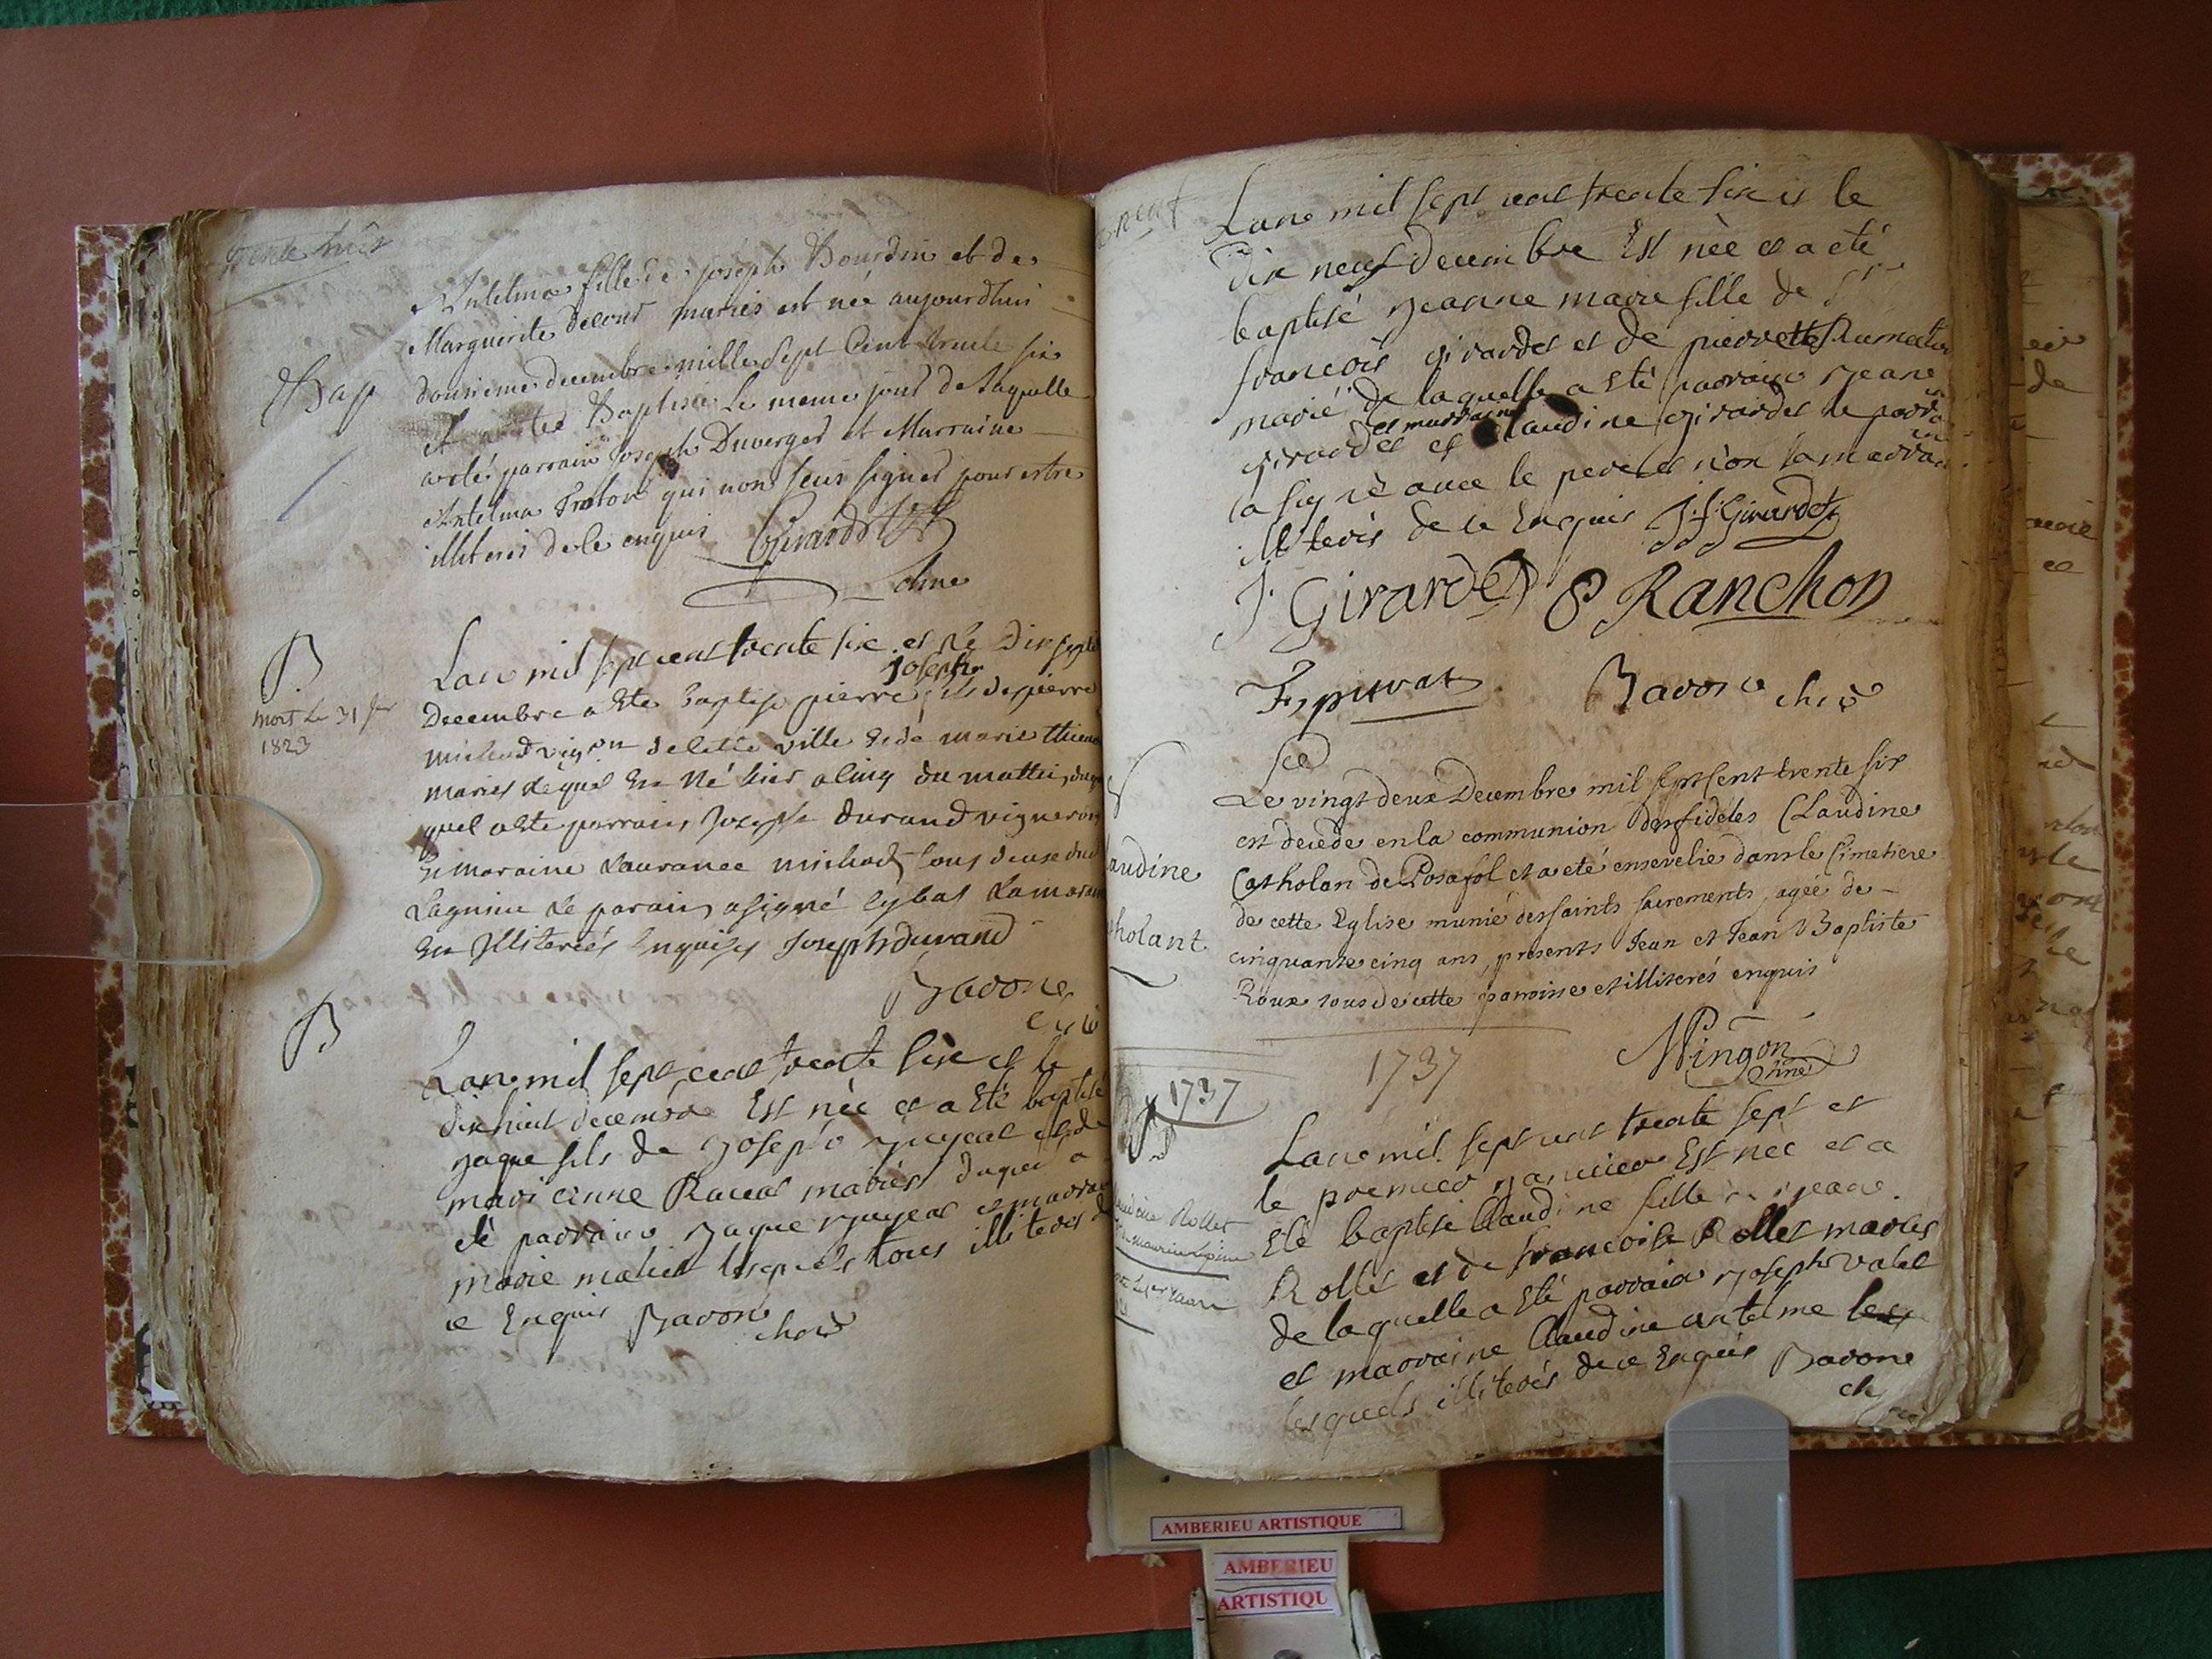 trente huit
Antelma fille de joseph Bourdin et de
Marguerite decour mariés est née aujourdhui
Bap
douzieme decembre mille Sept Cent trente six
Et a esté Baptisée Le meme jour de Laquelle
a esté parrain Joseph Duverger et Marraine
Antelma qui nont sceus signer pour estre
illiteres de ce enquis Girardet
B
mort Le 31 jer
1823
Lan mil sept cent trente six et le dix sept
joseph
Decembre a Ete baptisé pierre fils de pierre
michaud vigon de cette ville et de marie
mariés lequel est Né hier a cinq du mattin du
quel a Ete parrain Joseph durand vigneron
Et maraine Laurance michod tous deux dud
Lagnieu Le parain a signé
En Illiterés Enquises Joseph durand
Bavone
B
Lan mil sept cent trente six et le
dix huit decembre Est née et a Eté baptisé
jaque fils de joseph et de
mari anne mariés duquel a
eté parrain jaque et marraine
marie lesquels tous illiteres de
ce Enquis Bavone
Lan mil sept cent trente six et le
dix neuf decembre Est née et a eté
baptisé jeanne marie fille de Sr
francois girardet et de pierrette
marié de laquelle a Eté parrain jean
et marraine
girardet et Claudine girardet le parrain
a signé avec le pere et non la marraine
illiterés de ce Enquis J. f. Girardet
J. Girardet P Ranchon
Bavone
Claudine
Catholant
Le vingt deux Decembre mil sept cent trente six
est decede en la communion des fidéles Claudine
Catholan de Posafol et a eté ensevelie dans le Cimetiere
de cette Eglise munie des saints sacrements, agée de
cinquante cinq ans, presents Jean et Jean Baptiste
Roux tous de cette paroisse et illiterés enquis
Mingon
1737
1737
Lan mil sept cent trente sept et
le premier janvier Est née et a
Eté baptisé Claudine fille de jean
Rollet et de francoise Rollet mariés
de laquelle a Eté parrain joseph
et marraine Claudine antelme
lesquels illiterés de ce Enquis Bavone
AMBERIEU ARTISTIQUE
AMBERIEU
ARTISTIQU